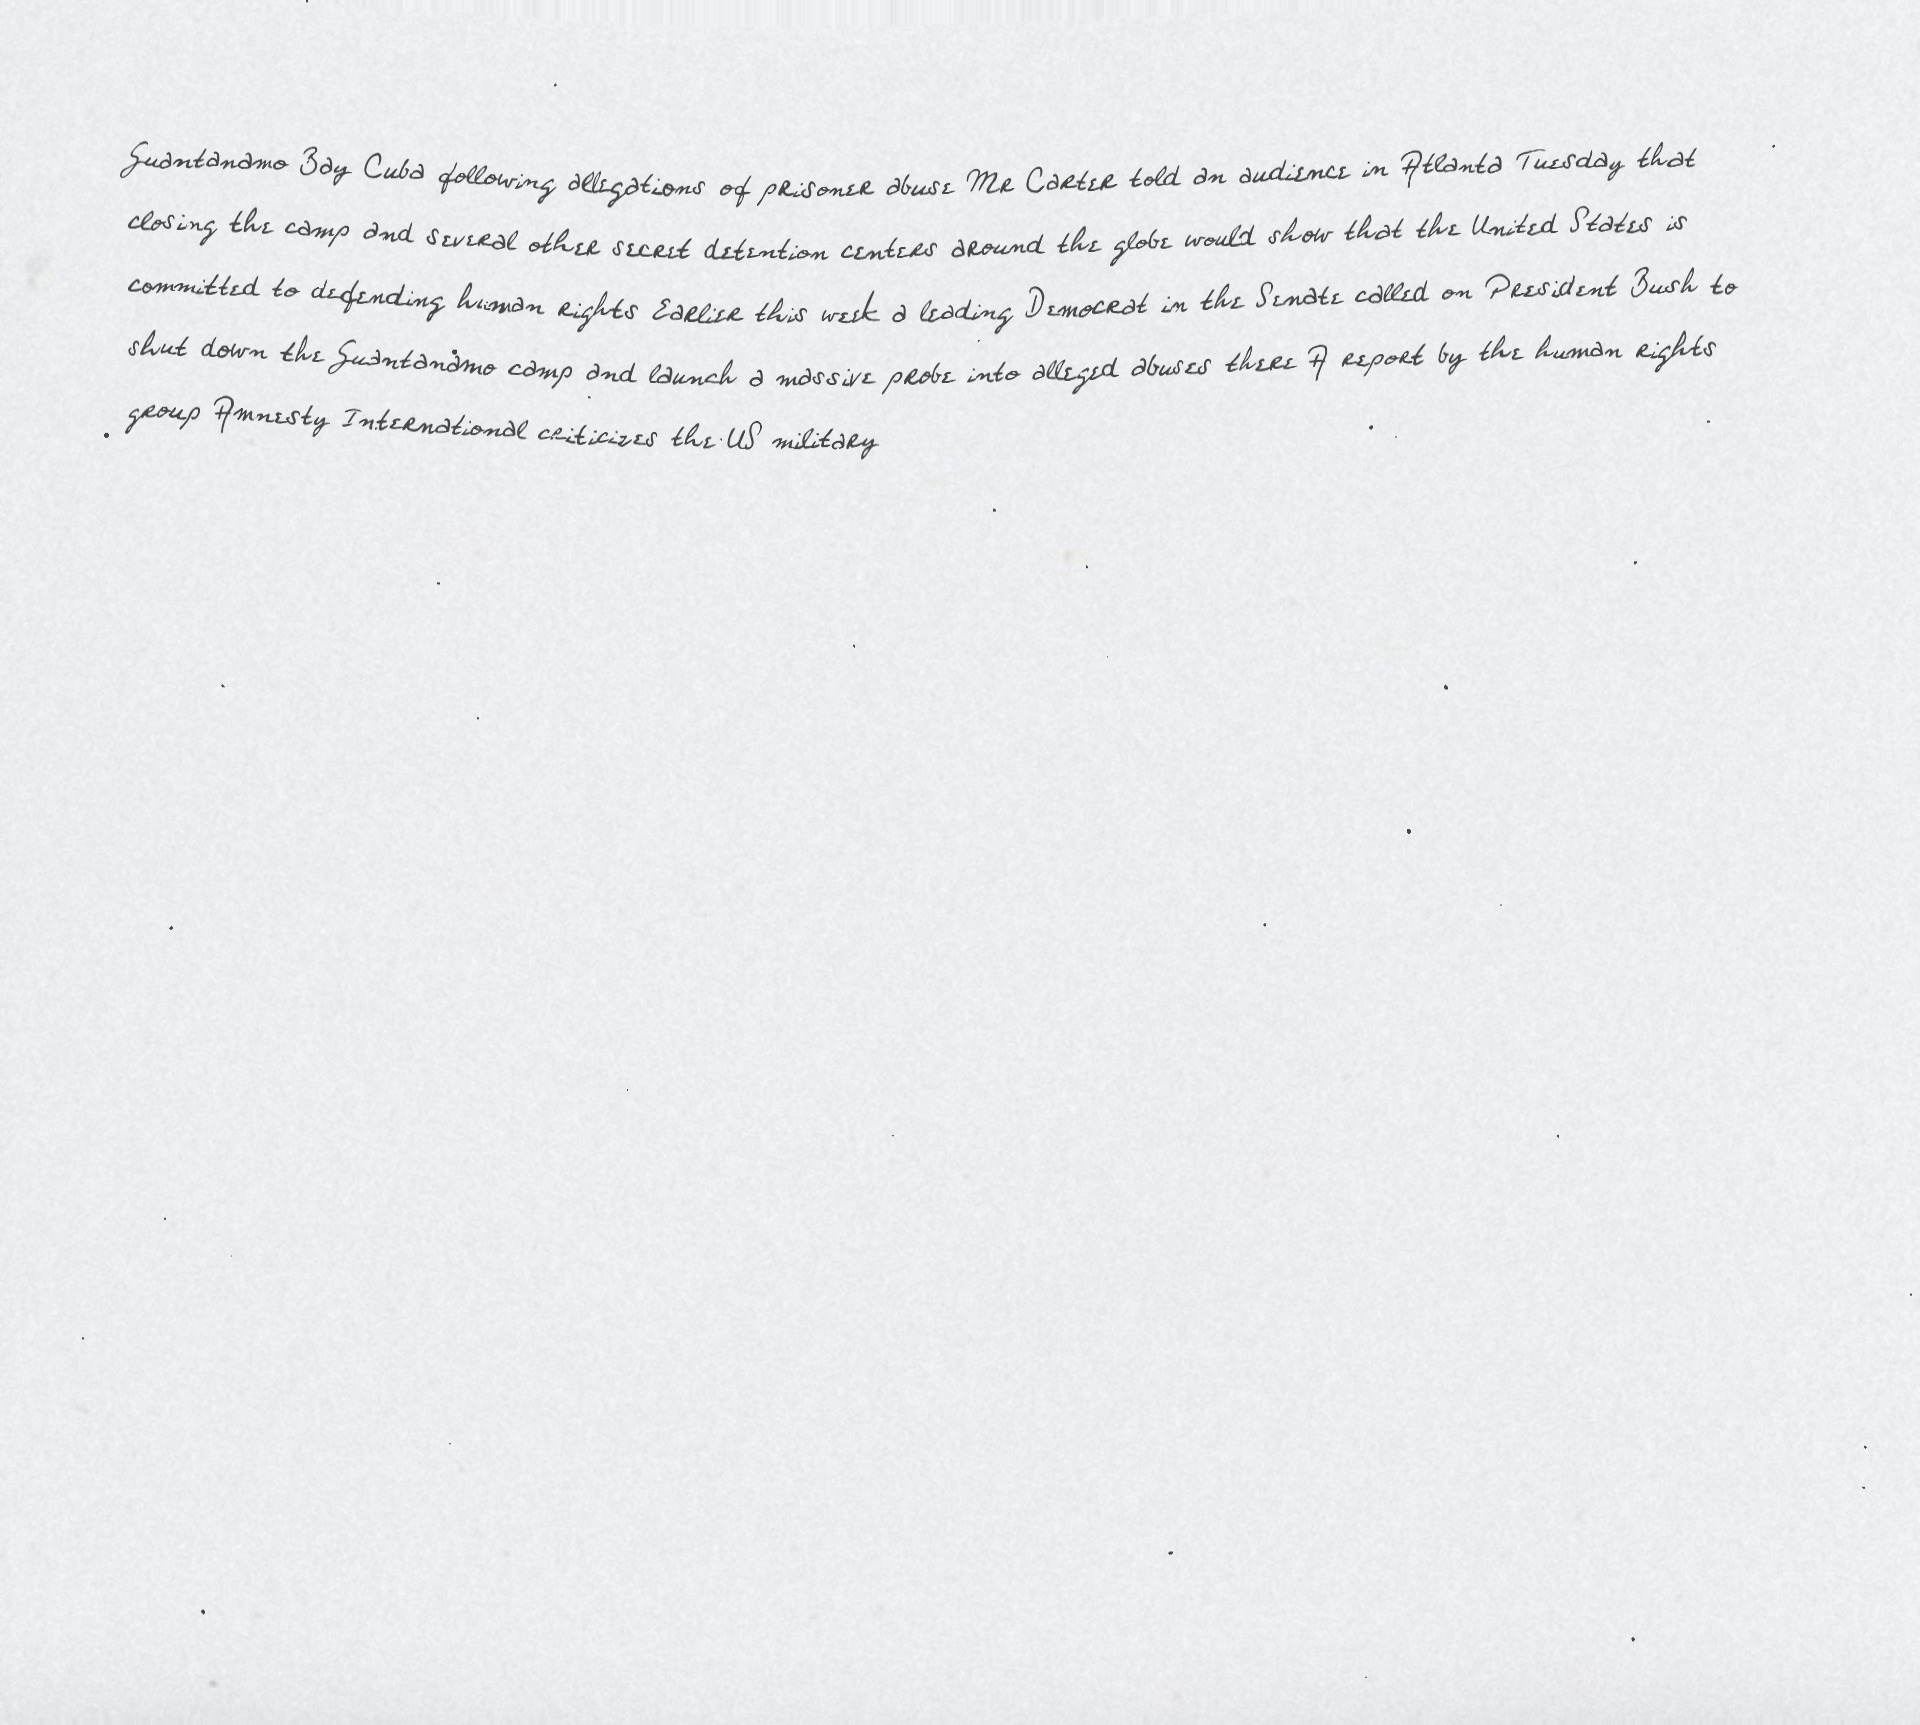 Guantanamo Bay Cuba following allegations of prisoner abuse Mr Carter told an audience in Atlanta Tuesday that
closing the camp and several other secret detention centers around the globe would show that the United States is
committed to defending human rights Earlier this week a leading Democrat in the Senate called on President Bush to
shut down the Guantanamo camp and launch a massive probe into alleged abuses there A report by the human rights
group Amnesty International criticizes the US military